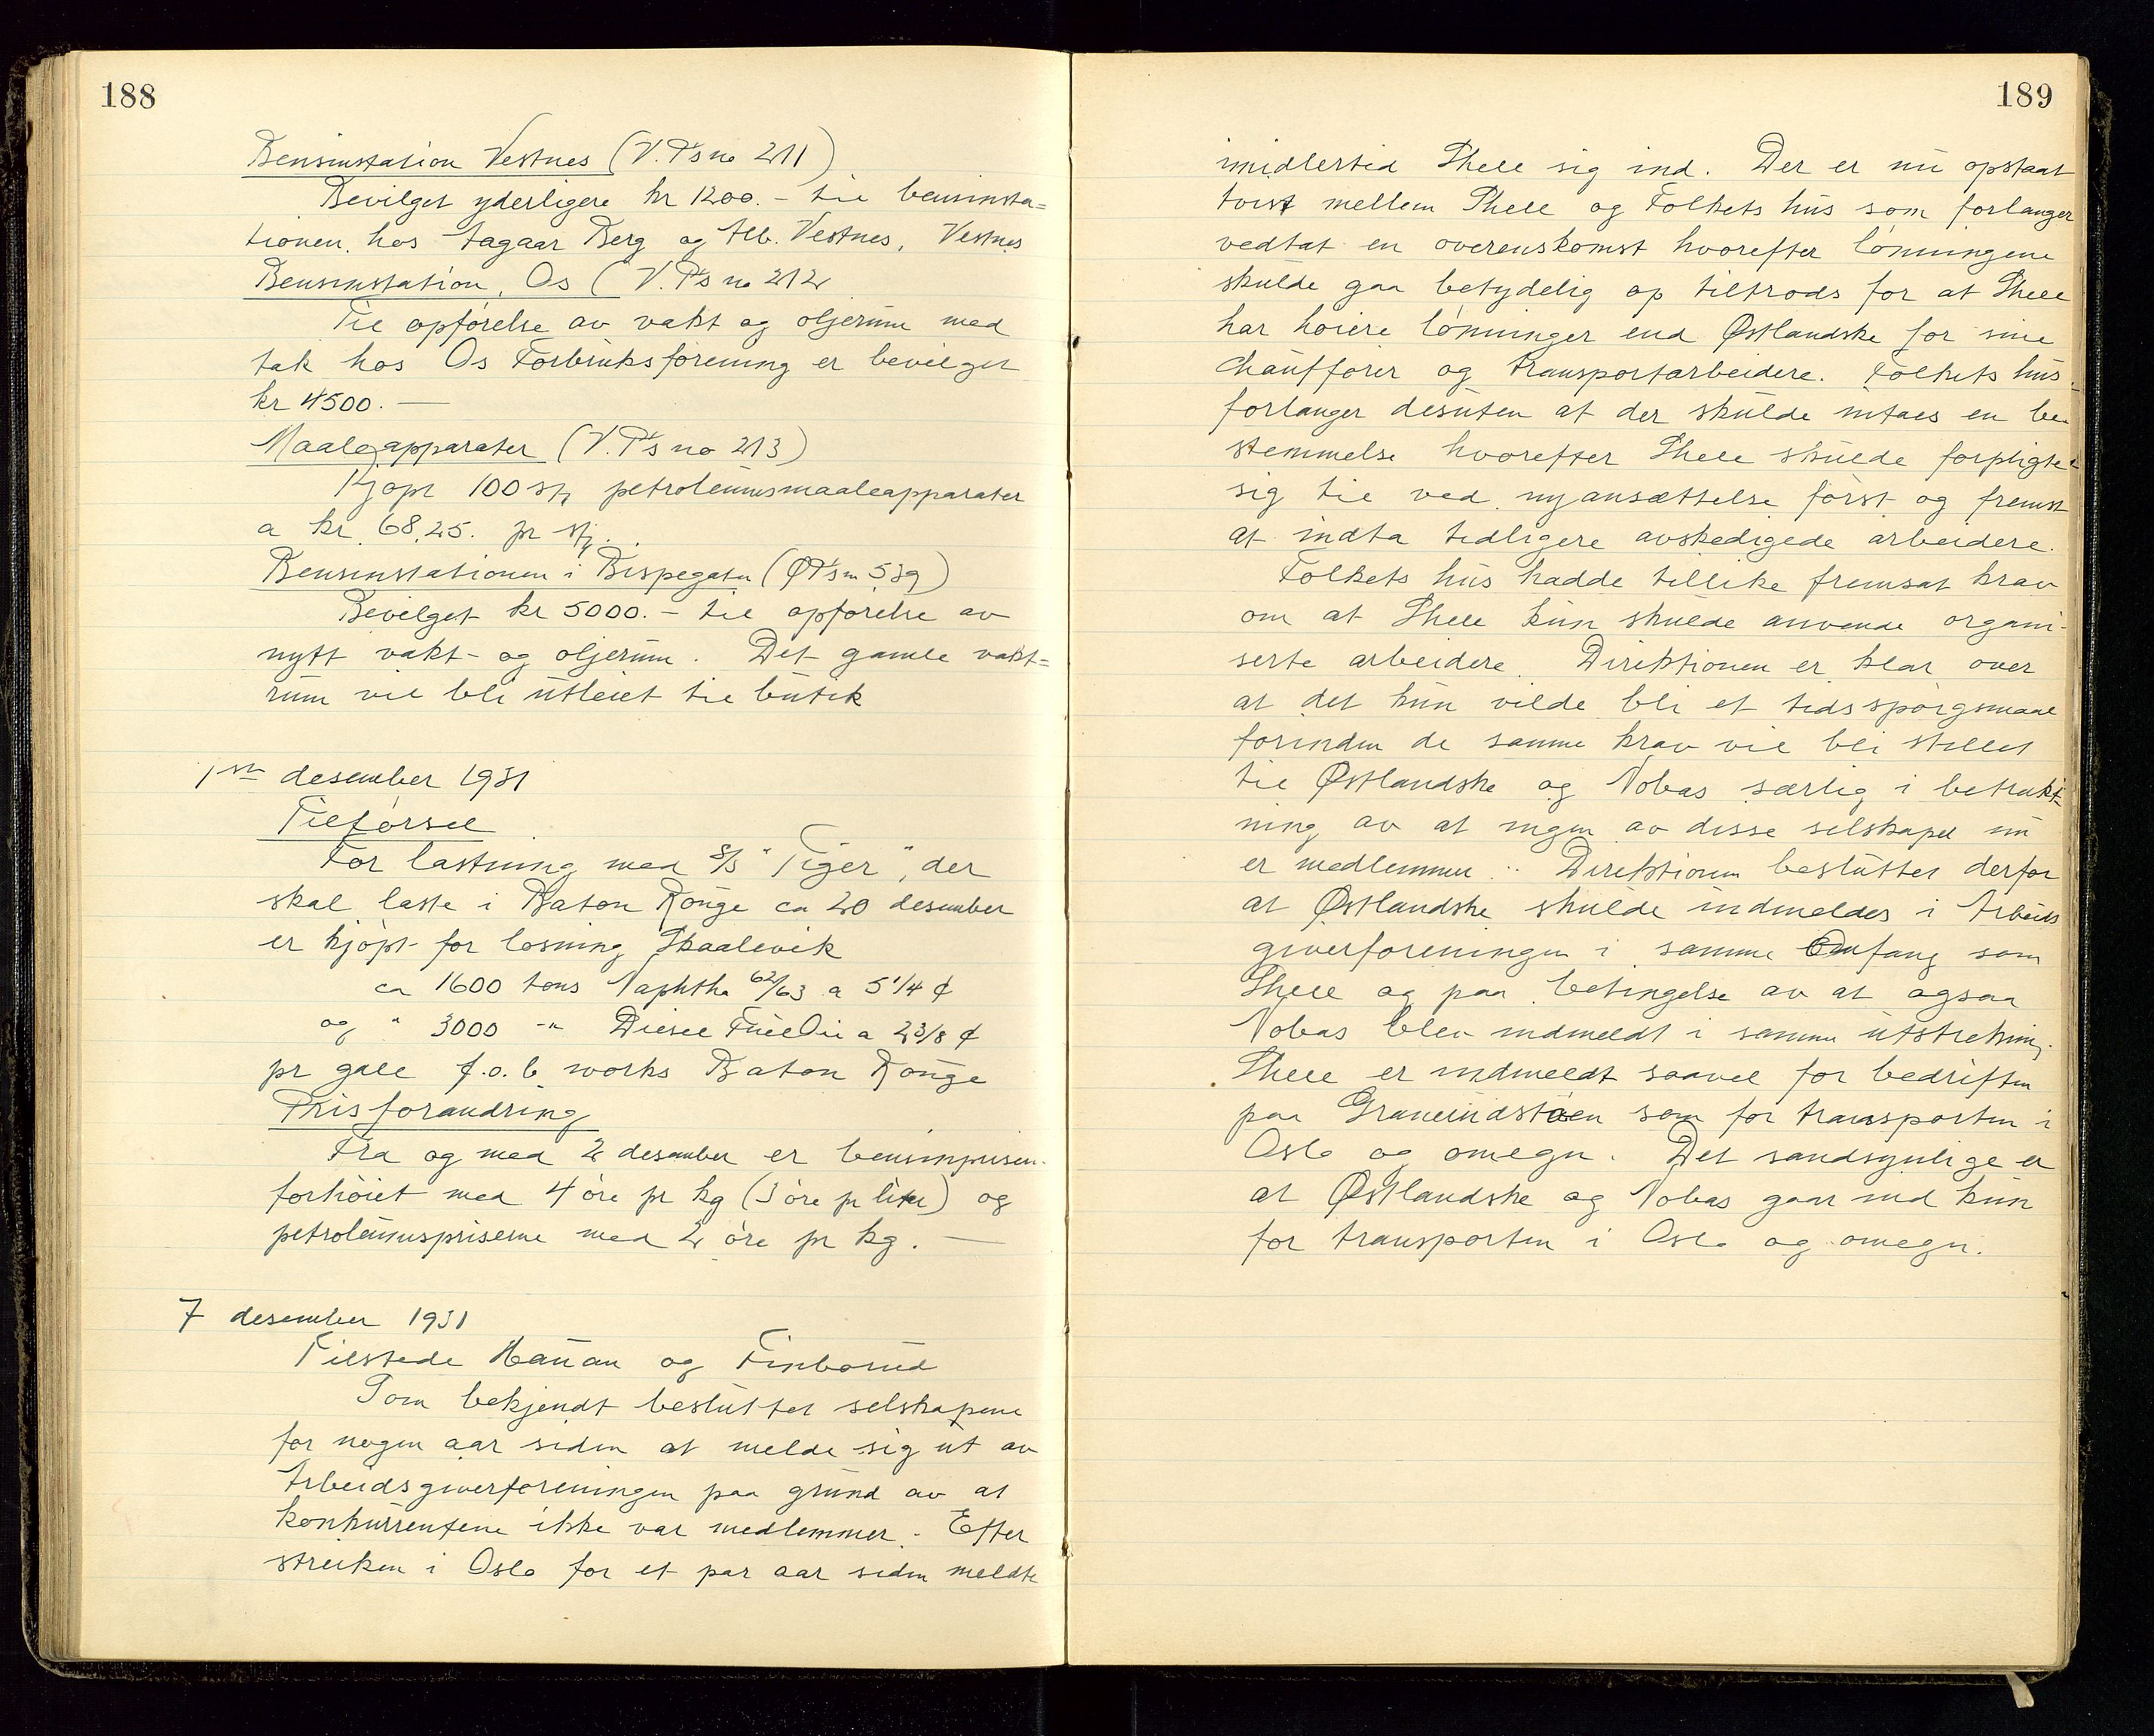 188
Bensinstation Vestnes (V.P's no 211)
Bevilget yderligere kr 1200.- til bensinsta=
tionen hos Aagaar Berg og Alb. Vestnes, Vestnes
Bensinstation, Os (V.P's no 212
Til opførelse av vakt og oljerum med
tak hos Os Forbruksforening er bevilget
kr 4500. —
Maaleapparater (V.P's no 213)
Kjøpt 100 stk petroleumsmaaleapparater
a kr 68,25. pr stk.
Bensinstationen i Bispegatn (ØP's no 539)
Bevilget kr 5000.- til opførelse av
nytt vakt- og oljerum. Det gamle vakt=
rum vil bli utleiet til butik
1ste desember 1931
Tilførsel
For lastning med S/S "Tiger", der
skal laste i Baton Rouge ca 20 desember
er kjøpt for losning Skaalevik
ca 1600 tons Naphtha 62/63 a 5 1/4 ¢
og " 3000 -"- Diesel Fuel Oil a 2 3/8 ¢
pr gall f.o.b. works Baton Rouge
Prisforandring
Fra og med 2 desember er bensinprisen
forhøiet med 4 øre pr kg (3 øre pr liter) og
petroleumspriserne med 2 øre pr kg. —
7 desember 1931
Tilstede Hauan og Finborud
Som bekjendt besluttet selskapene
for nogen aar siden at melde sig ut av
Arbeidsgiverforeningen paa grund av at
konkurrentene ikke var medlemmer. Efter
streiken i Oslo for et par aar siden meldte
189
imidlertid Shell sig ind. Der er nu opstaat
tvist mellem Shell og Folkets hus som forlanger
vedtat en overenskomst hvorefter lønningene
skulde gaa betydelig op tiltrods for at Shell
har høiere lønninger end Østlandske for sine
chauffører og transportarbeidere. Folkets hus
forlanger desuten at der skulde intaes en be-
stemmelse hvorefter Shell skulde forpligte
sig til ved nyansættelse først og fremst
at indta tidligere avskedigede arbeidere.
Folkets hus hadde tillike fremsat krav
om at Shell kun skulde anvende organi-
serte arbeidere. Direktionen er klar over
at det kun vilde bli et tidsspørgsmaal
forinden de samme krav vil bli stillet
til Østlandske og Nobas særlig i betrakt-
ning av at ingen av disse selskaper nu
er medlemmer. Direktionen besluttet derfor
at Østlandske skulde indmeldes i Arbeids
giverforeningen i samme Omfang som
Shell og paa betingelse av at ogsaa
Nobas blev indmeldt i samme utstrekning.
Shell er indmeldt saavel for bedriften
paa Granerudstøen som for transporten i
Oslo og omegn. Det sandsynlige er
at Østlandske og Nobas gaar ind kun
for transporten i Oslo og omegn.